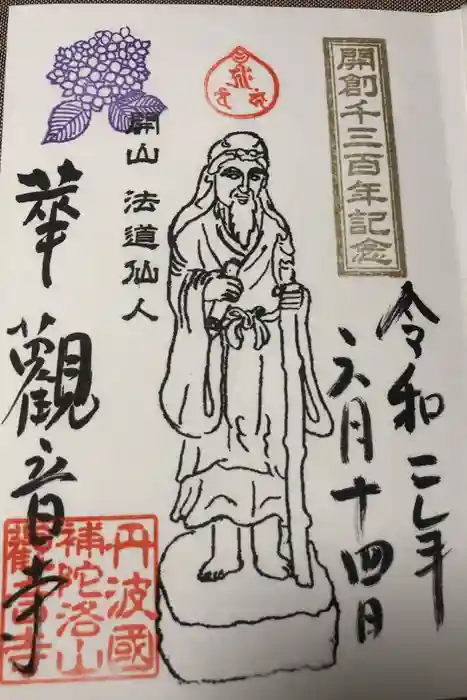 開創千三百年記念
令和二年
六月十四日
開山 法道仙人
華觀音寺
丹波國
補陀洛山
觀音寺